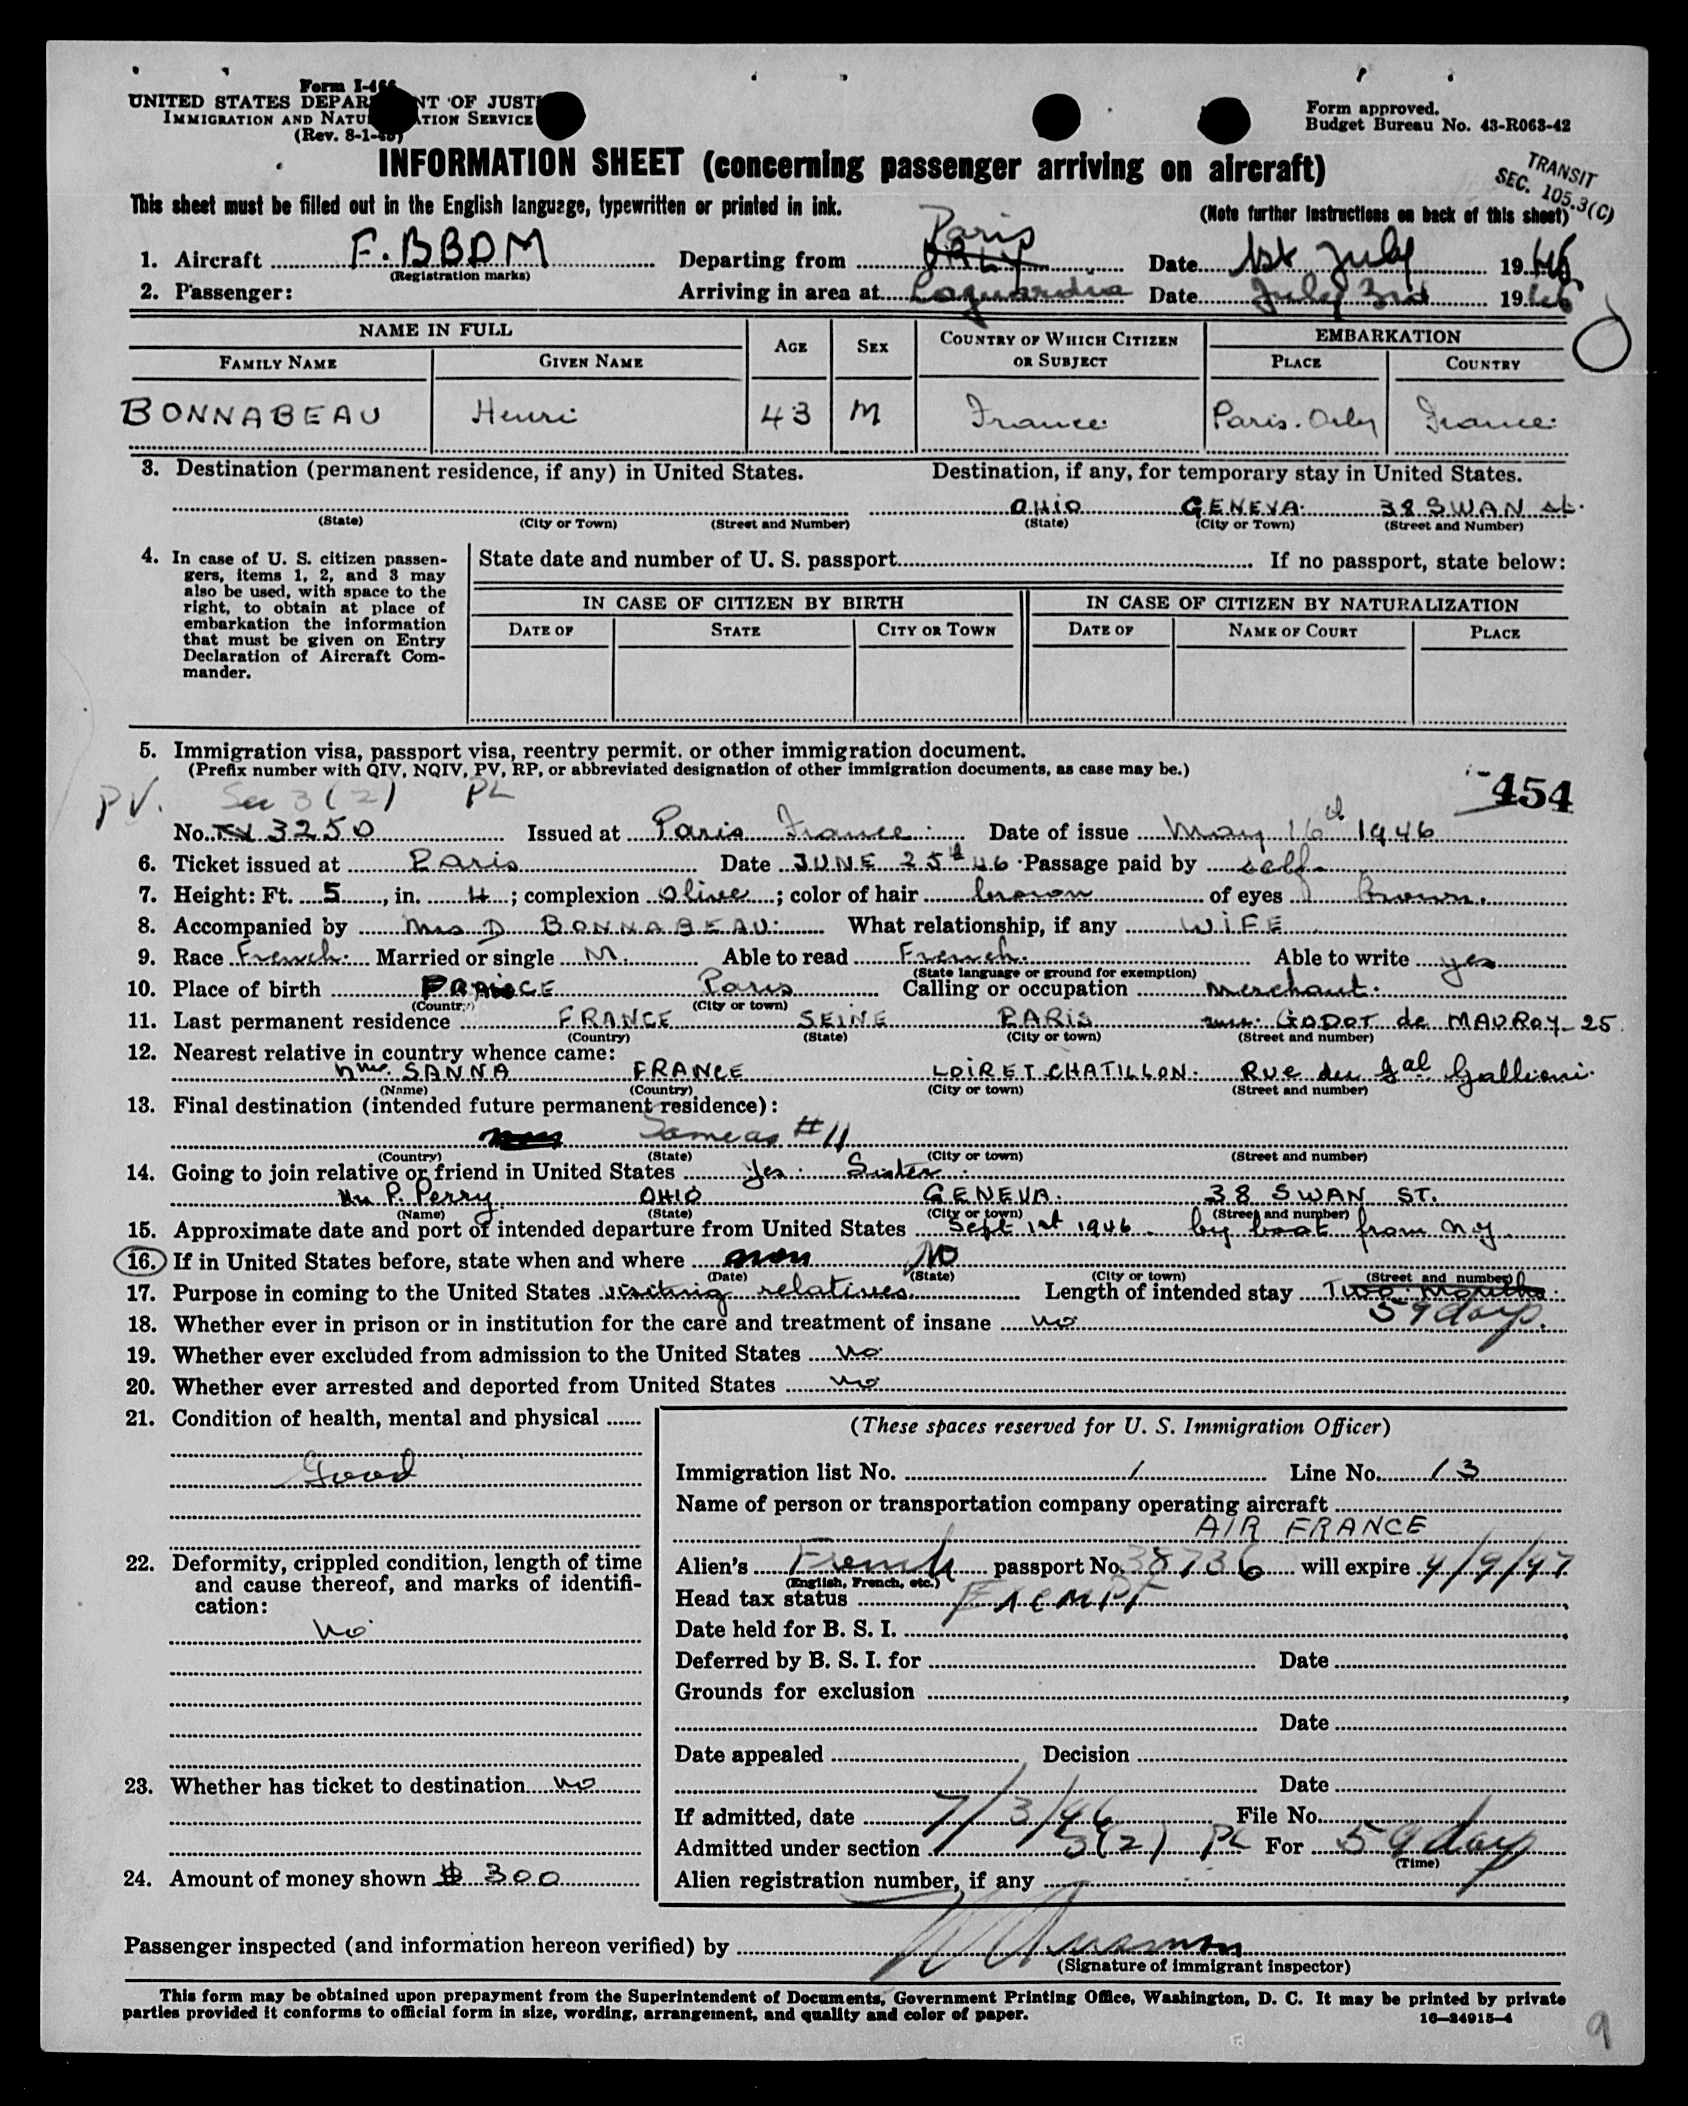 Form I-466
UNITED STATES DEPARTMENT OF JUSTICE
IMMIGRATION AND NATURALIZATION SERVICE
(Rev. 8-1-45)
Form approved.
Budget Bureau No. 43-R063-42
INFORMATION SHEET (concerning passenger arriving on aircraft)
TRANSIT
SEC. 105.3(C)
This sheet must be filled out in the English language, typewritten or printed in ink.
(Note further instructions on back of this sheet)
Paris
1. Aircraft F.BBDM Departing from ORLY Date 1st July 1946
(Registration marks)
2. Passenger: Arriving in area at Laguardia Date July 3rd 1946
NAME IN FULL AGE SEX COUNTRY OF WHICH CITIZEN OR SUBJECT EMBARKATION
FAMILY NAME GIVEN NAME PLACE COUNTRY
BONNABEAU Henri 43 M France Paris. Orly France
3. Destination (permanent residence, if any) in United States. Destination, if any, for temporary stay in United States.
OHIO GENEVA 38 SWAN st.
(State) (City or Town) (Street and Number) (State) (City or Town) (Street and Number)
4. In case of U. S. citizen passen-
gers, items 1, 2, and 3 may
also be used, with space to the
right, to obtain at place of
embarkation the information
that must be given on Entry
Declaration of Aircraft Com-
mander.
State date and number of U. S. passport If no passport, state below:
IN CASE OF CITIZEN BY BIRTH IN CASE OF CITIZEN BY NATURALIZATION
DATE OF STATE CITY OR TOWN DATE OF NAME OF COURT PLACE
5. Immigration visa, passport visa, reentry permit, or other immigration document.
(Prefix number with QIV, NQIV, PV, RP, or abbreviated designation of other immigration documents, as case may be.)
454
PV. Sec 3(2) PL
No. 3250 Issued at Paris France Date of issue May 16th 1946
6. Ticket issued at Paris Date JUNE 25th 46 Passage paid by self
7. Height: Ft. 5, in. 4; complexion Olive; color of hair brown of eyes Brown.
8. Accompanied by Mrs D BONNABEAU What relationship, if any WIFE
9. Race French Married or single M. Able to read French. Able to write yes
(State language or ground for exemption)
10. Place of birth FRANCE Paris Calling or occupation merchant.
(Country) (City or town)
11. Last permanent residence FRANCE SEINE PARIS rue GODOT de MAUROY-25.
(Country) (State) (City or town) (Street and number)
12. Nearest relative in country whence came:
Mme. SANNA FRANCE LOIRET CHATILLON. Rue du Gal Gallieni.
(Name) (Country) (City or town) (Street and number)
13. Final destination (intended future permanent residence):
Same as #11
(Country) (State) (City or town) (Street and number)
14. Going to join relative or friend in United States Yes. Sister.
P. Perry OHIO GENEVA. 38 SWAN ST.
(Name) (State) (City or town) (Street and number)
15. Approximate date and port of intended departure from United States Sept 1st 1946. by boat from N.Y.
16. If in United States before, state when and where No
(Date) (State) (City or town) (Street and number)
17. Purpose in coming to the United States visiting relatives. Length of intended stay Two Months
59 days.
18. Whether ever in prison or in institution for the care and treatment of insane no
19. Whether ever excluded from admission to the United States no
20. Whether ever arrested and deported from United States no
21. Condition of health, mental and physical
Good
22. Deformity, crippled condition, length of time
and cause thereof, and marks of identifi-
cation:
no
23. Whether has ticket to destination no
24. Amount of money shown $ 300
(These spaces reserved for U. S. Immigration Officer)
Immigration list No. 1 Line No. 13
Name of person or transportation company operating aircraft
AIR FRANCE
Alien's French passport No. 38736 will expire 4/9/47
(English, French, etc.)
Head tax status Exempt
Date held for B. S. I.
Deferred by B. S. I. for Date
Grounds for exclusion
Date
Date appealed Decision
Date
If admitted, date 7/3/46 File No.
Admitted under section 3(2) PL For 59 days
(Time)
Alien registration number, if any
Passenger inspected (and information hereon verified) by
(Signature of immigrant inspector)
This form may be obtained upon prepayment from the Superintendent of Documents, Government Printing Office, Washington, D. C. It may be printed by private
parties provided it conforms to official form in size, wording, arrangement, and quality and color of paper.
16—24915-4
9